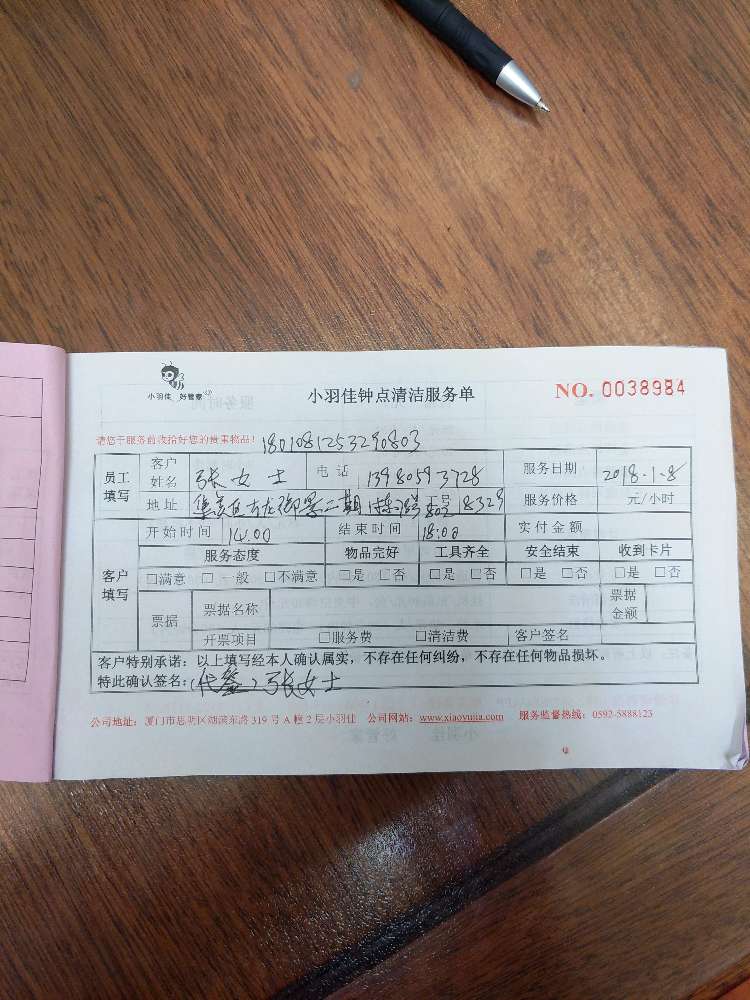 小羽佳 好管家
小羽佳钟点清洁服务单
NO. 0038984
请您于服务前收拾好您的贵重物品!
1801081253290803
员工填写 客户姓名 张女士 电话 13980593728 服务日期 2018.1.8
地址 集美区 御景二期 803 工号 18329 服务价格 元/小时
客户填写 开始时间 14.00 结束时间 18:00 实付金额
服务态度 物品完好 工具齐全 安全结束 收到卡片
□满意 □一般 □不满意 □是 □否 □是 □否 □是 □否 □是 □否
票据 票据名称 票据金额
开票项目 □服务费 □清洁费 客户签名
客户特别承诺:以上填写经本人确认属实,不存在任何纠纷,不存在任何物品损坏。
特此确认签名:(代签)张女士
公司地址:厦门市思明区湖滨东路319号A幢2层小羽佳 公司网站:www.xiaoyujia.com 服务监督热线:0592-5888123